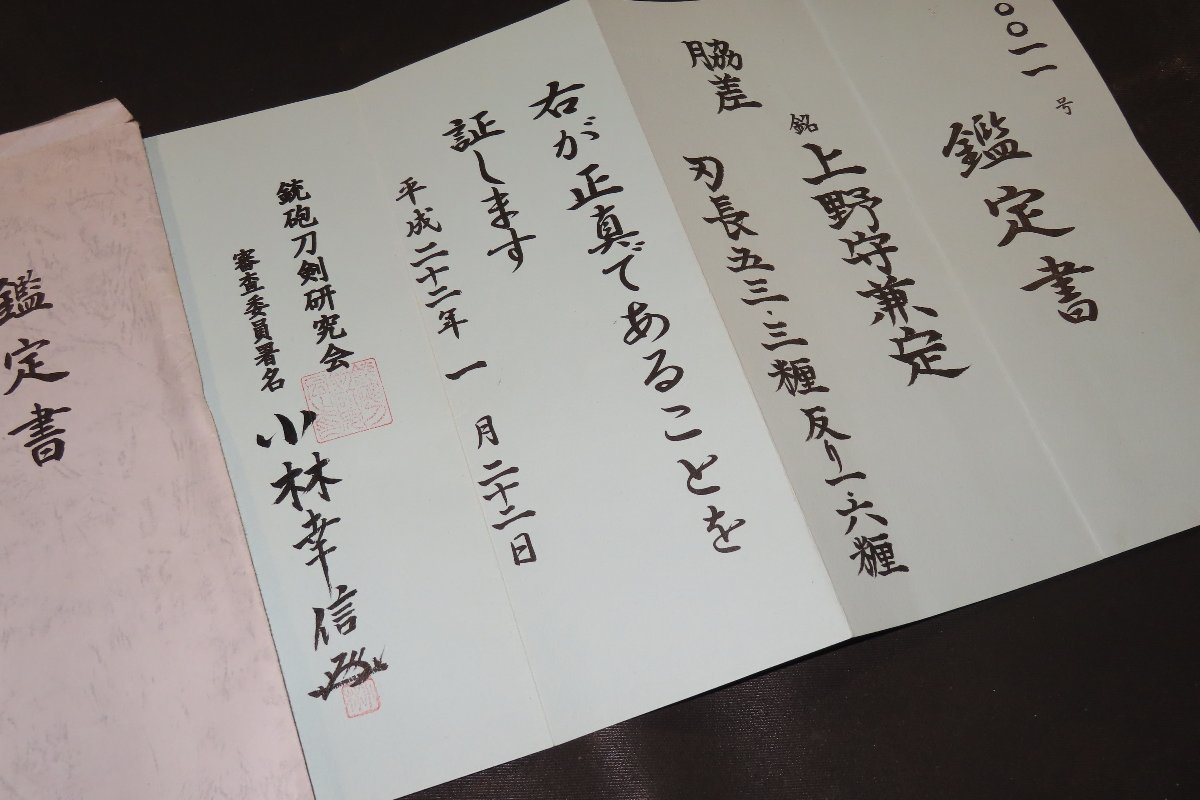 〇〇一一号
鑑定書
銘 上野守兼定
脇差 刃長五三・三糎 反り一・六糎
右が正真であることを
証します
平成二十二年一月二十二日
銃砲刀剣研究会
審査委員署名 小林幸信
鑑定書